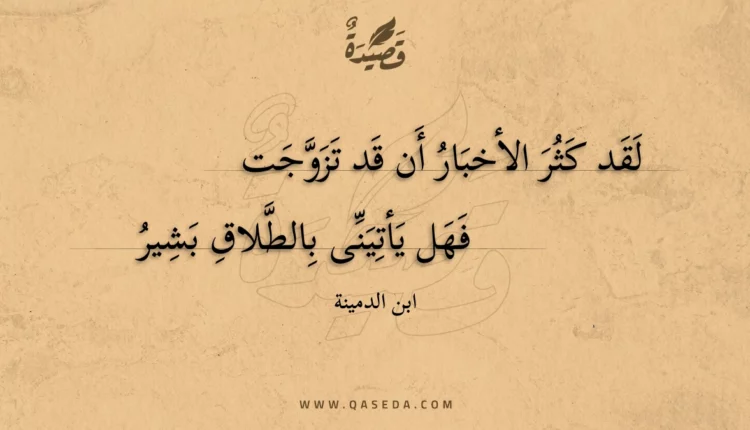 قَصِيدَةٌ
لَقَد كَثُرَ الأخبَارُ أَن قَد تَزَوَّجَت
فَهَل يَأتِيَنِّى بِالطَّلاقِ بَشِيرُ
ابن الدمينة
WWW.QASEDA.COM